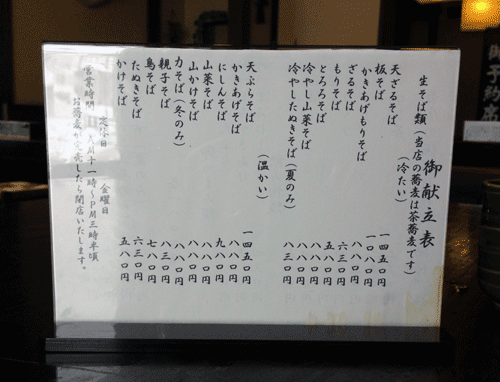 御献立表
生そば類(当店の蕎麦は茶蕎麦です)
(冷たい)
天ざるそば 一四五〇円
板そば 一〇八〇円
かきあげもりそば 八八〇円
ざるそば 六三〇円
もりそば 五八〇円
とろろそば 八八〇円
冷やし山菜そば 八八〇円
冷やしたぬきそば(夏のみ) 八三〇円
(温かい)
天ぷらそば 一四五〇円
かきあげそば 八八〇円
にしんそば 九八〇円
山菜そば 八八〇円
山かけそば 八八〇円
力そば(冬のみ) 八八〇円
親子そば 八三〇円
鳥そば 七八〇円
たぬきそば 六三〇円
かけそば 五八〇円
定休日 金曜日
営業時間 AM十一時～PM三時半頃
お蕎麦が完売したら閉店いたします。